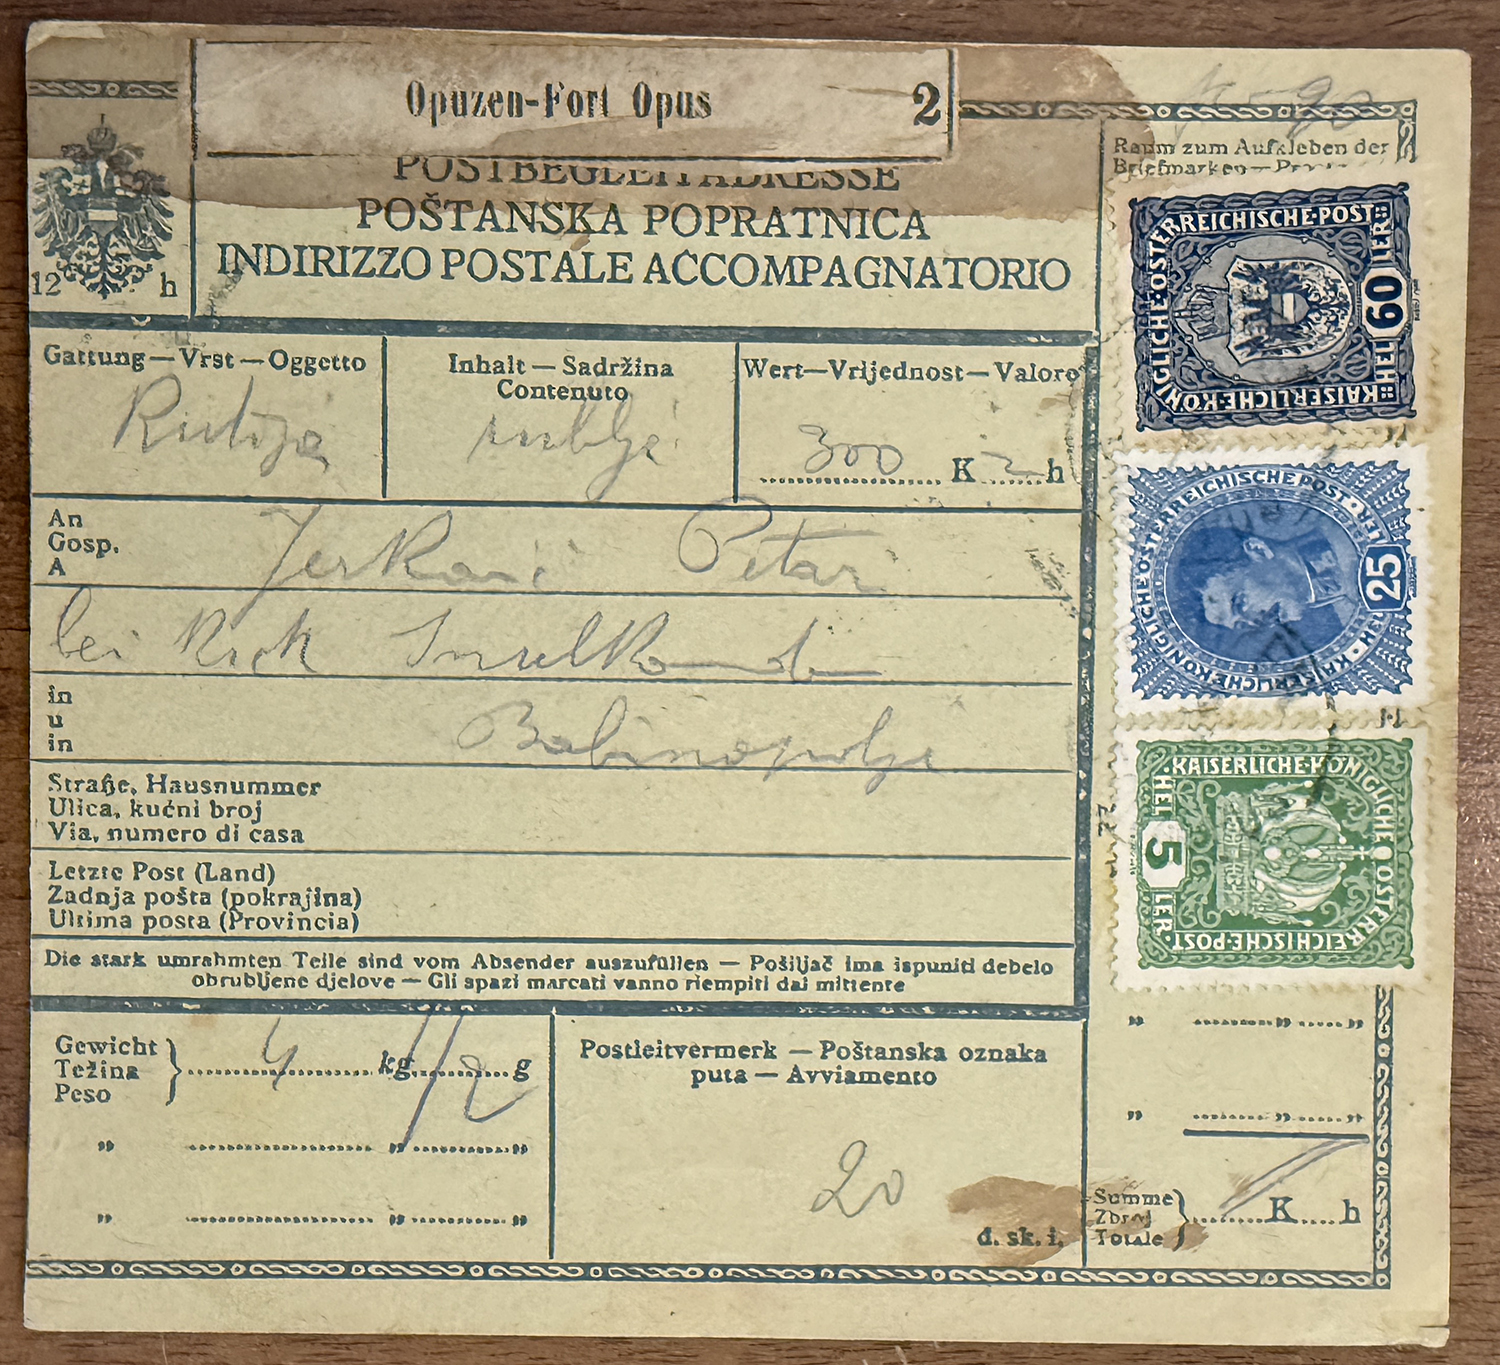 Opuzen-Fort Opus 2
POSTBEGLEITADRESSE
POŠTANSKA POPRATNICA
INDIRIZZO POSTALE ACCOMPAGNATORIO
12 h
Raum zum Aufkleben der
Briefmarken —
KAISERLICHE·KÖNIGLICHE·ÖSTERREICHISCHE·POST
HELLER 60
Gattung — Vrst — Oggetto
Inhalt — Sadržina
Contenuto
Wert—Vrijednost—Valore
Kutija
rublje
300 K h
KAISERLICHE·KÖNIGLICHE·ÖSTERREICHISCHE POST
HELLER 25
An
Gosp.
A
Jerković Petar
bei
in
u
in
Babinopolje
Straße, Hausnummer
Ulica, kućni broj
Via, numero di casa
KAISERLICHE·KÖNIGLICHE ÖSTERREICHISCHE·POST
HELLER 5
Letzte Post (Land)
Zadnja pošta (pokrajina)
Ultima posta (Provincia)
Die stark umrahmten Teile sind vom Absender auszufüllen — Pošiljač ima ispuniti debelo
obrubljene djelove — Gli spazi marcati vanno riempiti dal mittente
Gewicht
Težina
Peso
4 kg 1/2 g
Postleitvermerk — Poštanska oznaka
puta — Avviamento
20
d. sk. i.
Summe
Zbroj
Totale
K h